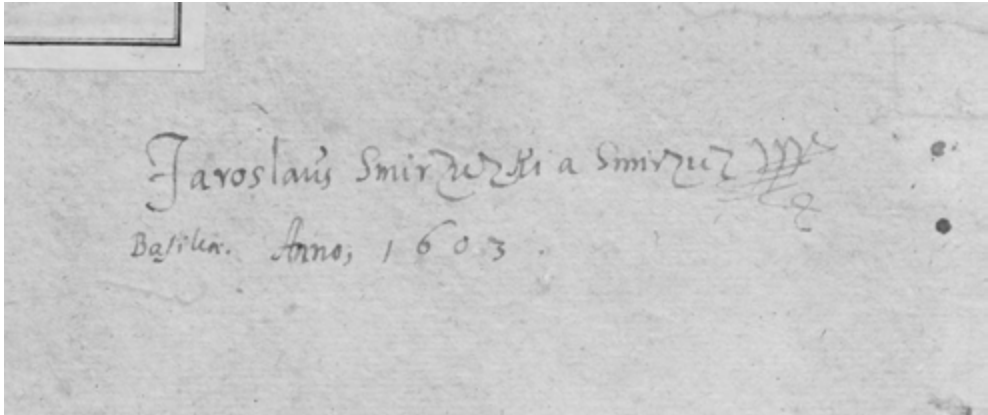 Jaroslaus Smirzizki a Smirziz
Basileæ. Anno, 1603.